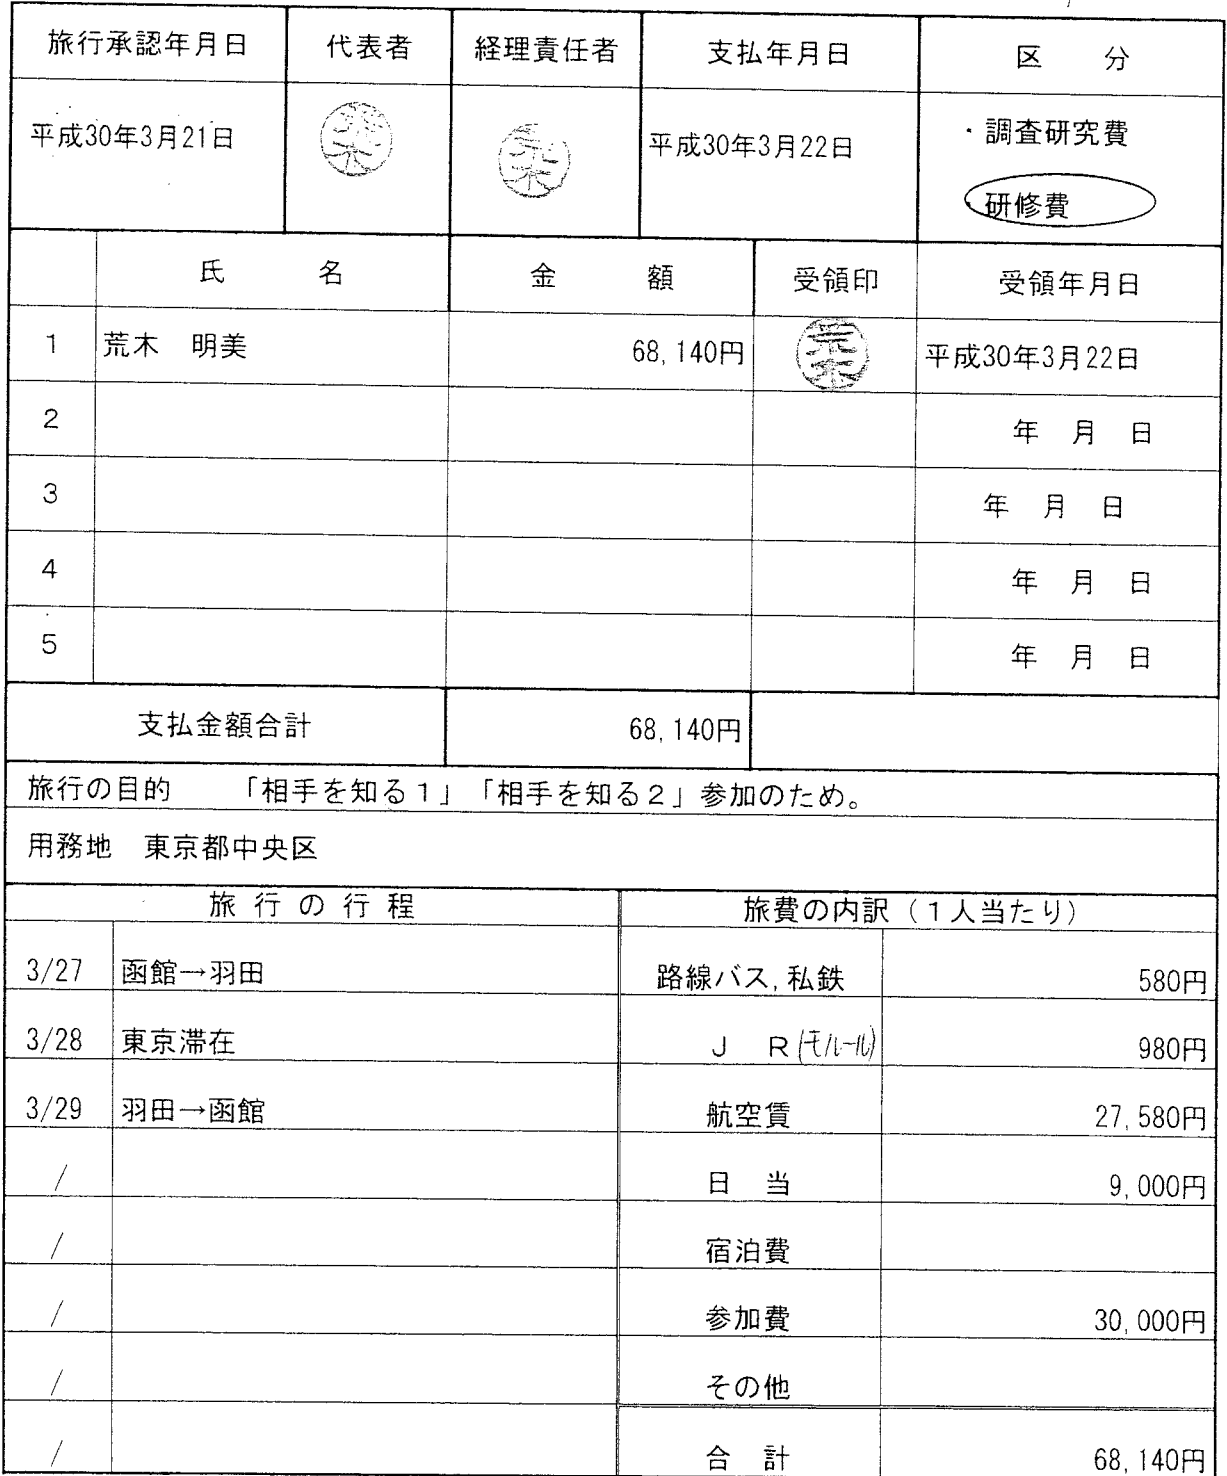 旅行承認年月日 代表者 経理責任者 支払年月日 区 分
平成30年3月21日 荒木 荒木 平成30年3月22日 ・調査研究費
・研修費
氏 名 金 額 受領印 受領年月日
1 荒木 明美 68,140円 荒木 平成30年3月22日
2 年 月 日
3 年 月 日
4 年 月 日
5 年 月 日
支払金額合計 68,140円
旅行の目的 「相手を知る1」「相手を知る2」参加のため。
用務地 東京都中央区
旅行の行程 旅費の内訳(1人当たり)
3/27 函館→羽田 路線バス,私鉄 580円
3/28 東京滞在 J R(モノレール) 980円
3/29 羽田→函館 航空賃 27,580円
/ 日 当 9,000円
/ 宿泊費
/ 参加費 30,000円
/ その他
/ 合 計 68,140円